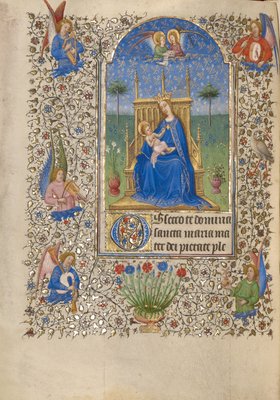 OBsecro te domina
sancta maria ma
ter dei pietate ple